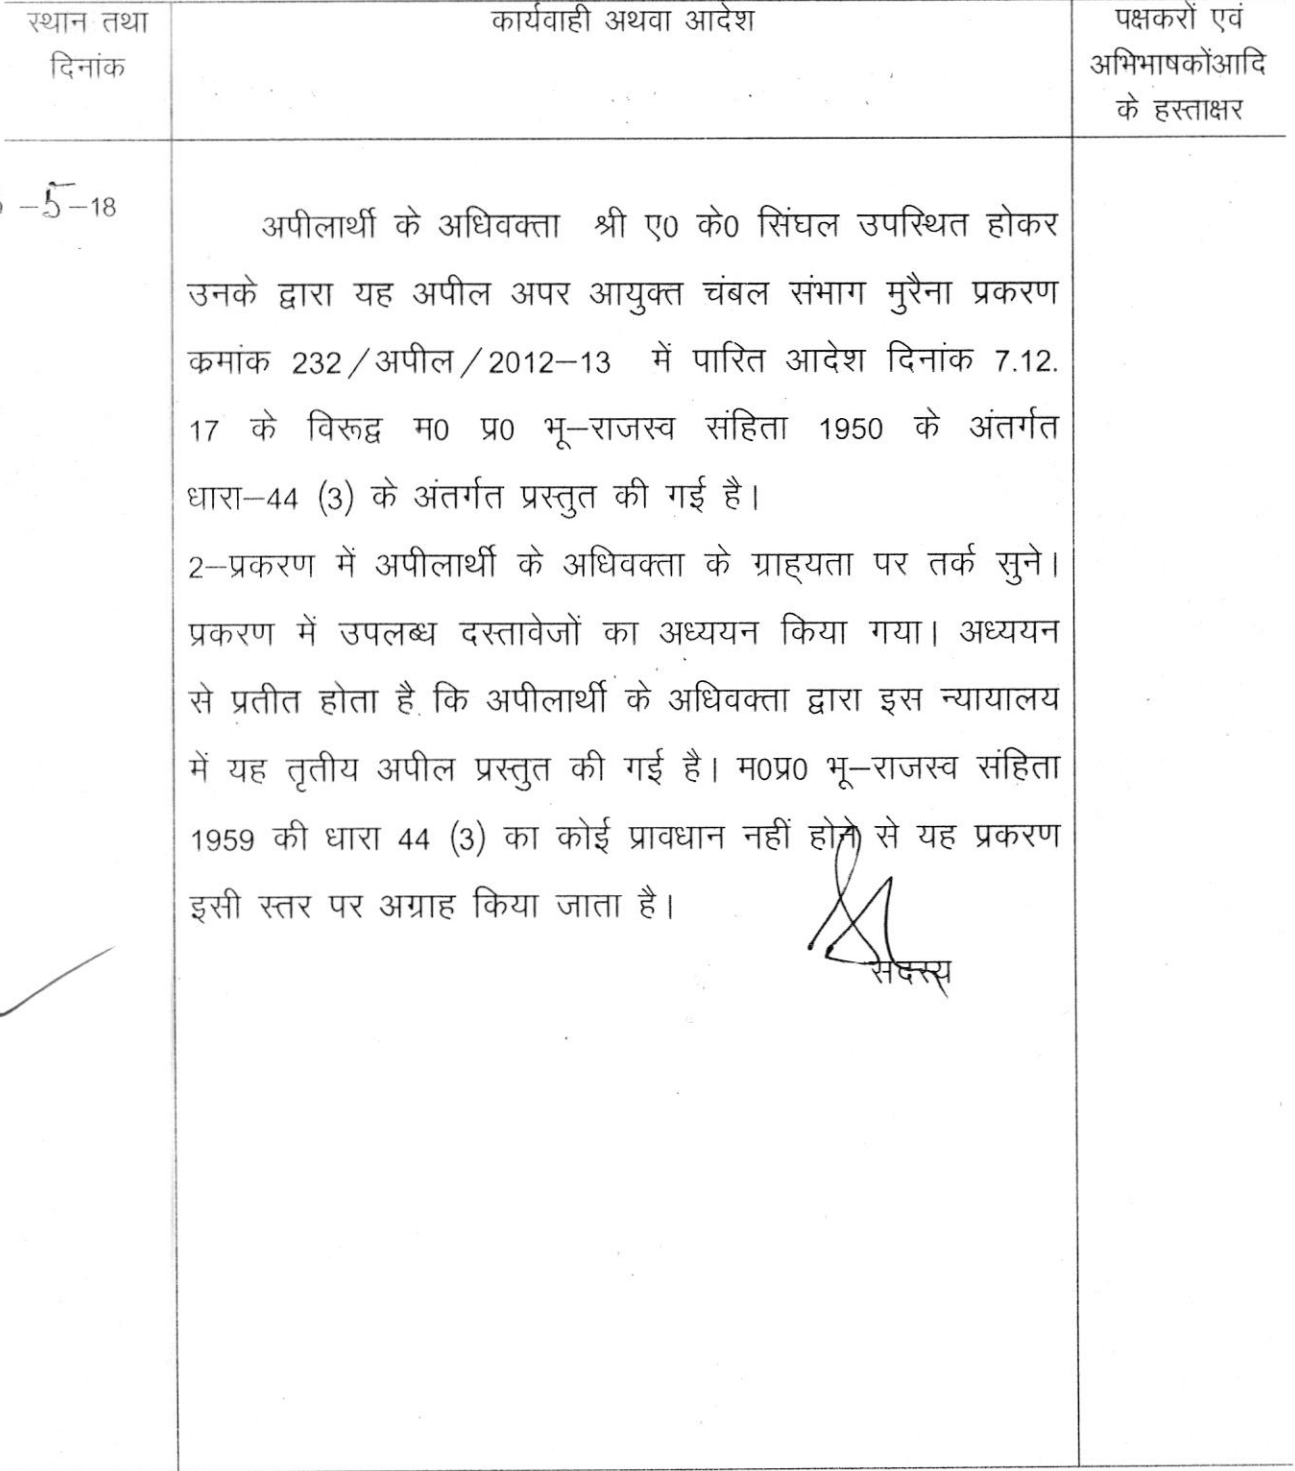 स्थान तथा
दिनांक
कार्यवाही अथवा आदेश
पक्षकरों एवं
अभिभाषकोंआदि
के हस्ताक्षर
–5–18
अपीलार्थी के अधिवक्ता श्री ए0 के0 सिंघल उपस्थित होकर
उनके द्वारा यह अपील अपर आयुक्त चंबल संभाग मुरैना प्रकरण
कमांक 232/अपील/2012–13 में पारित आदेश दिनांक 7.12.
17 के विरूद्व म0 प्र0 भू–राजस्व संहिता 1950 के अंतर्गत
धारा–44 (3) के अंतर्गत प्रस्तुत की गई है।
2–प्रकरण में अपीलार्थी के अधिवक्ता के ग्राह्यता पर तर्क सुने।
प्रकरण में उपलब्ध दस्तावेजों का अध्ययन किया गया। अध्ययन
से प्रतीत होता है कि अपीलार्थी के अधिवक्ता द्वारा इस न्यायालय
में यह तृतीय अपील प्रस्तुत की गई है। म0प्र0 भू–राजस्व संहिता
1959 की धारा 44 (3) का कोई प्रावधान नहीं होने से यह प्रकरण
इसी स्तर पर अग्राह किया जाता है।
सदस्य